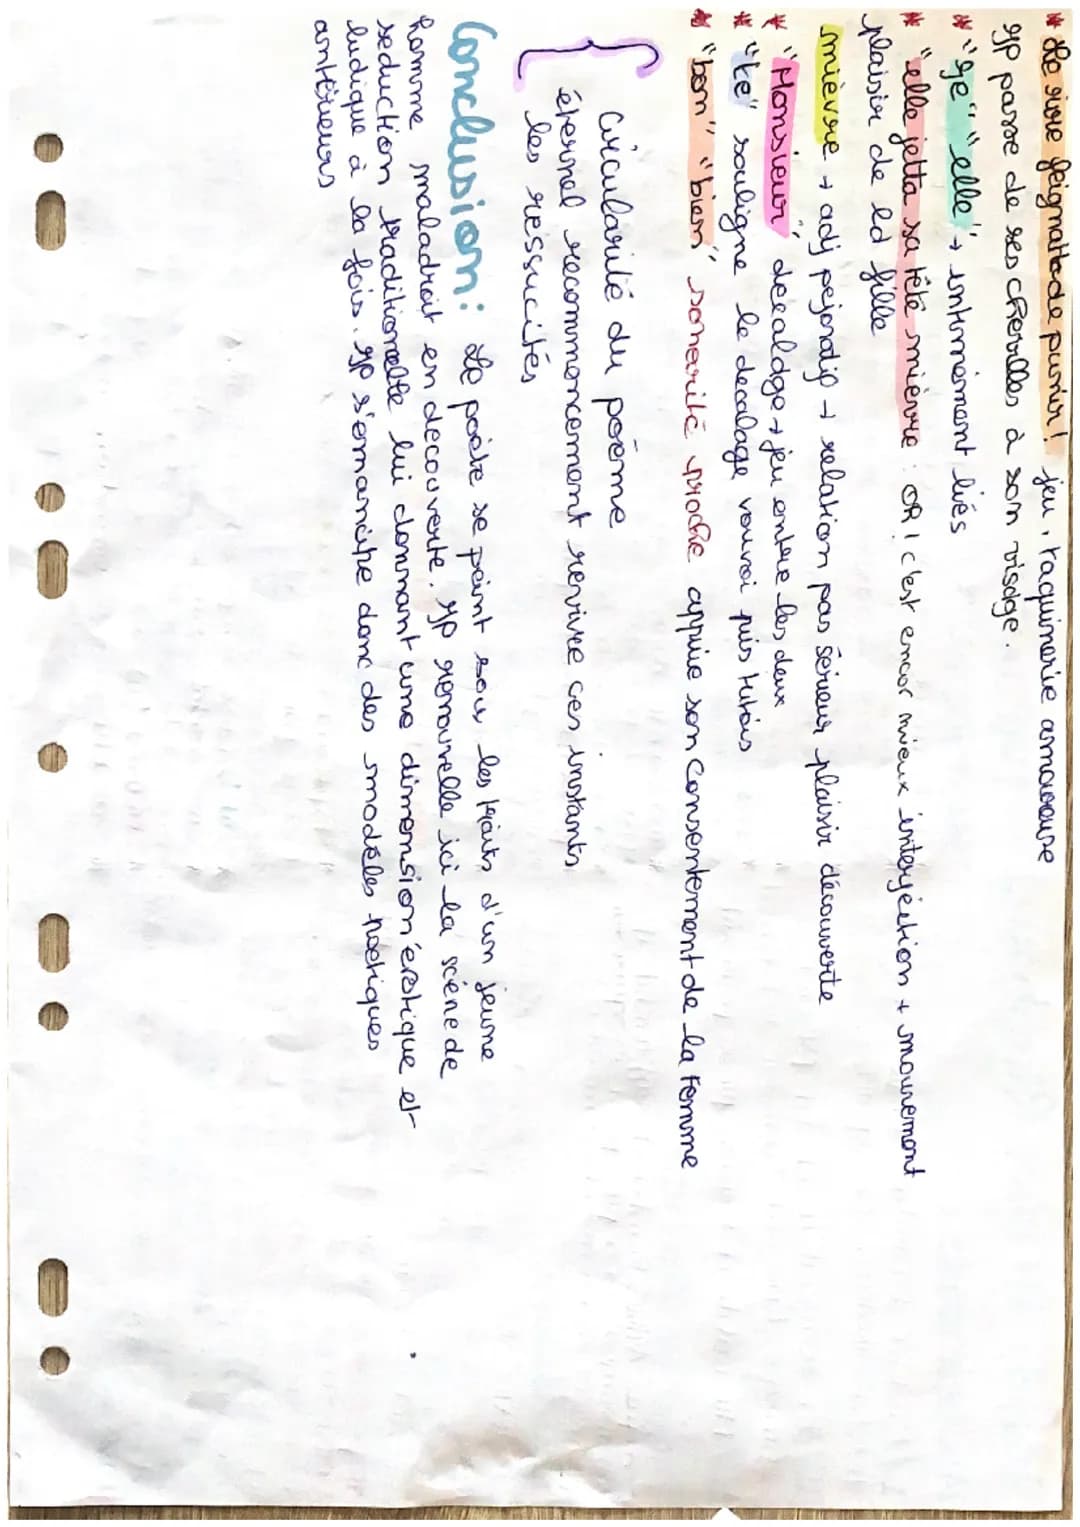 * Le rire feignait de punir! jeu, taquinerie amoureuse
gp passe de ses chevilles à son visage.
* "ge" "elle" → intimement liés
* "elle jetta sa tête mièvre : OR! c'est encor mieux interjection + mouvement
plaisir de la fille
mièvre → adj péjoratif → relation pas sérieux plaisir découverte
* "Monsieur" décalage → jeu entre les deux
* "te" souligne le décalage vouvoi puis tutois
* "bon" "bien" sonorité proche appuie son consentement de la femme
Circularité du poème
éternel recommencement revivre ces instants
les réssucités
Conclusion : Le poète se peint sous les traits d'un jeune
homme maladroit en découverte. gp renouvelle ici la scène de
seduction traditionelle lui donnant une dimension érotique et
ludique à la fois. gp s'émancipe donc des modèles poétiques
antérieurs